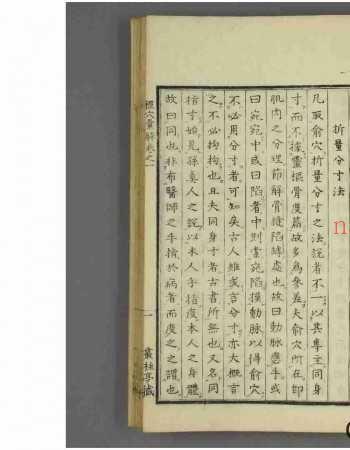 折量分寸法
凡取俞穴折量分寸之法說者不一以其專主同身
寸而不據靈樞骨度篇故多為參差夫俞穴所在卽
肌肉之分理節解骨縫陷罅處也故曰動脉應手或
曰宛宛中或曰陷者中則當宛陷摸動脉以得俞穴
不必用分寸者可知矣古人雖或言分寸亦大概言
之不必拘拘也且夫同身寸者古書所無也又名同
指寸始見孫真人之說以本人手指度本人之身體
故曰同也非布醫師之手指於病者而度之之謂也
穴彙解卷之一
一
叢桂亭藏
n